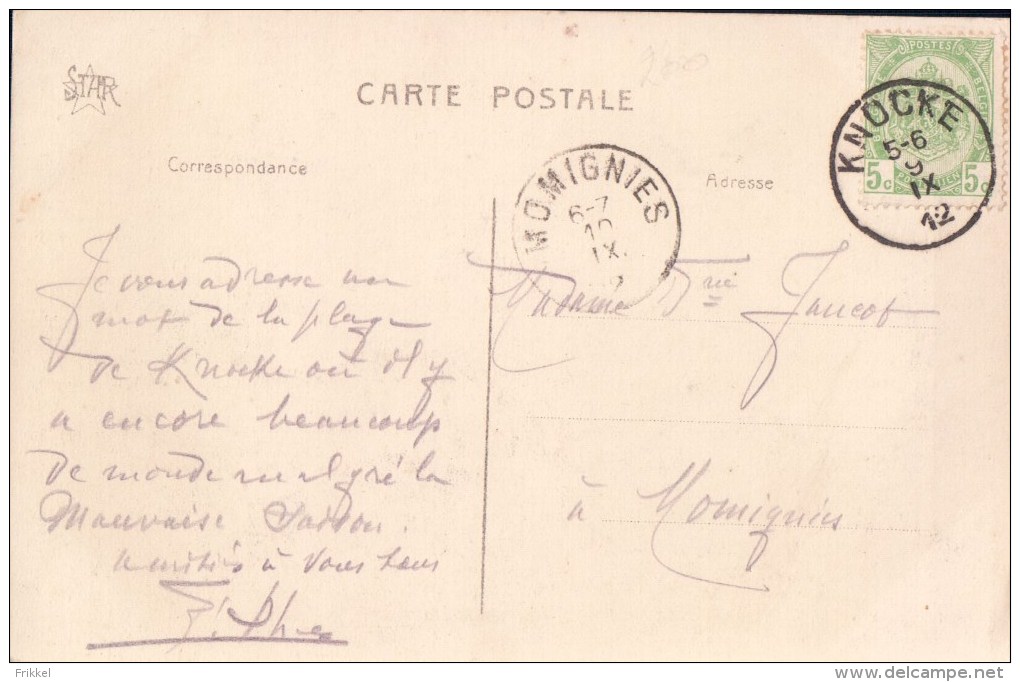 STAR
CARTE POSTALE
Correspondance
Adresse
200
POSTES
5c 5c
KNOCKE
5-6
9
IX
12
MOMIGNIES
6-7
10
IX
Je vous adresse un
mot de la plage
de Knocke où il y
a encore beaucoup
de monde malgré la
Mauvaise Saison.
Amitiés à vous tous
Madame
à Momignies
Frikkel
www.delcampe.net